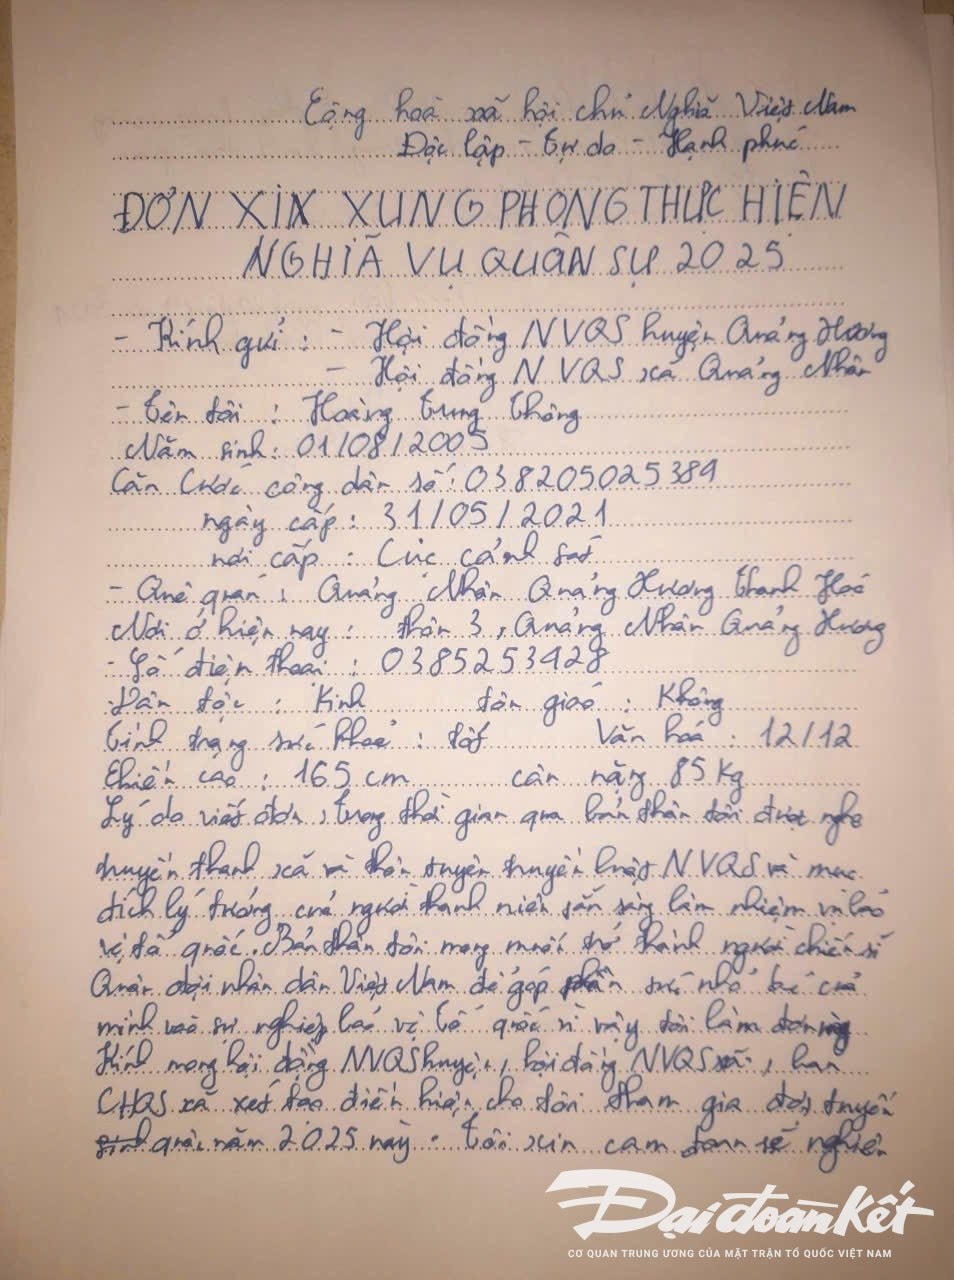 Cộng hoà xã hội chủ Nghĩa Việt Nam
Độc lập - Tự do - Hạnh phúc
ĐƠN XIN XUNG PHONG THỰC HIỆN
NGHĨA VỤ QUÂN SỰ 2025
- Kính gửi : - Hội đồng NVQS huyện Quảng Xương
- Hội đồng NVQS xã Quảng Nhân
- Tên tôi : Hoàng Trung Thông
Năm sinh : 01/08/2005
Căn Cước công dân số : 038205025384
ngày cấp : 31/05/2021
nơi cấp : Cục cảnh sát
- Quê quán : Quảng Nhân Quảng Xương Thanh Hoá
Nơi ở hiện nay : thôn 3, Quảng Nhân Quảng Xương
- Số điện thoại : 0385253428
Dân tộc : Kinh tôn giáo : Không
Tình trạng sức khoẻ : tốt Văn hoá : 12/12
Chiều cao : 165 cm cân nặng 85 Kg
Lý do viết đơn, trong thời gian qua bản thân tôi được nghe
truyền thanh xã và thôn tuyên truyền luật NVQS và mục
đích lý tưởng của người thanh niên sẵn sàng làm nhiệm vụ bảo
vệ tổ quốc. Bản thân tôi mong muốn trở thành người chiến sĩ
Quân đội nhân dân Việt Nam để góp phần sức nhỏ bé của
mình vào sự nghiệp bảo vệ Tổ quốc vì vậy tôi làm đơn này
Kính mong hội đồng NVQS huyện, hội đồng NVQS xã, ban
CHQS xã xét tạo điều kiện cho tôi tham gia đợt tuyển
quân năm 2025 này. Tôi xin cam đoan sẽ nghiêm
Đại đoàn Kết
CƠ QUAN TRUNG ƯƠNG CỦA MẶT TRẬN TỔ QUỐC VIỆT NAM